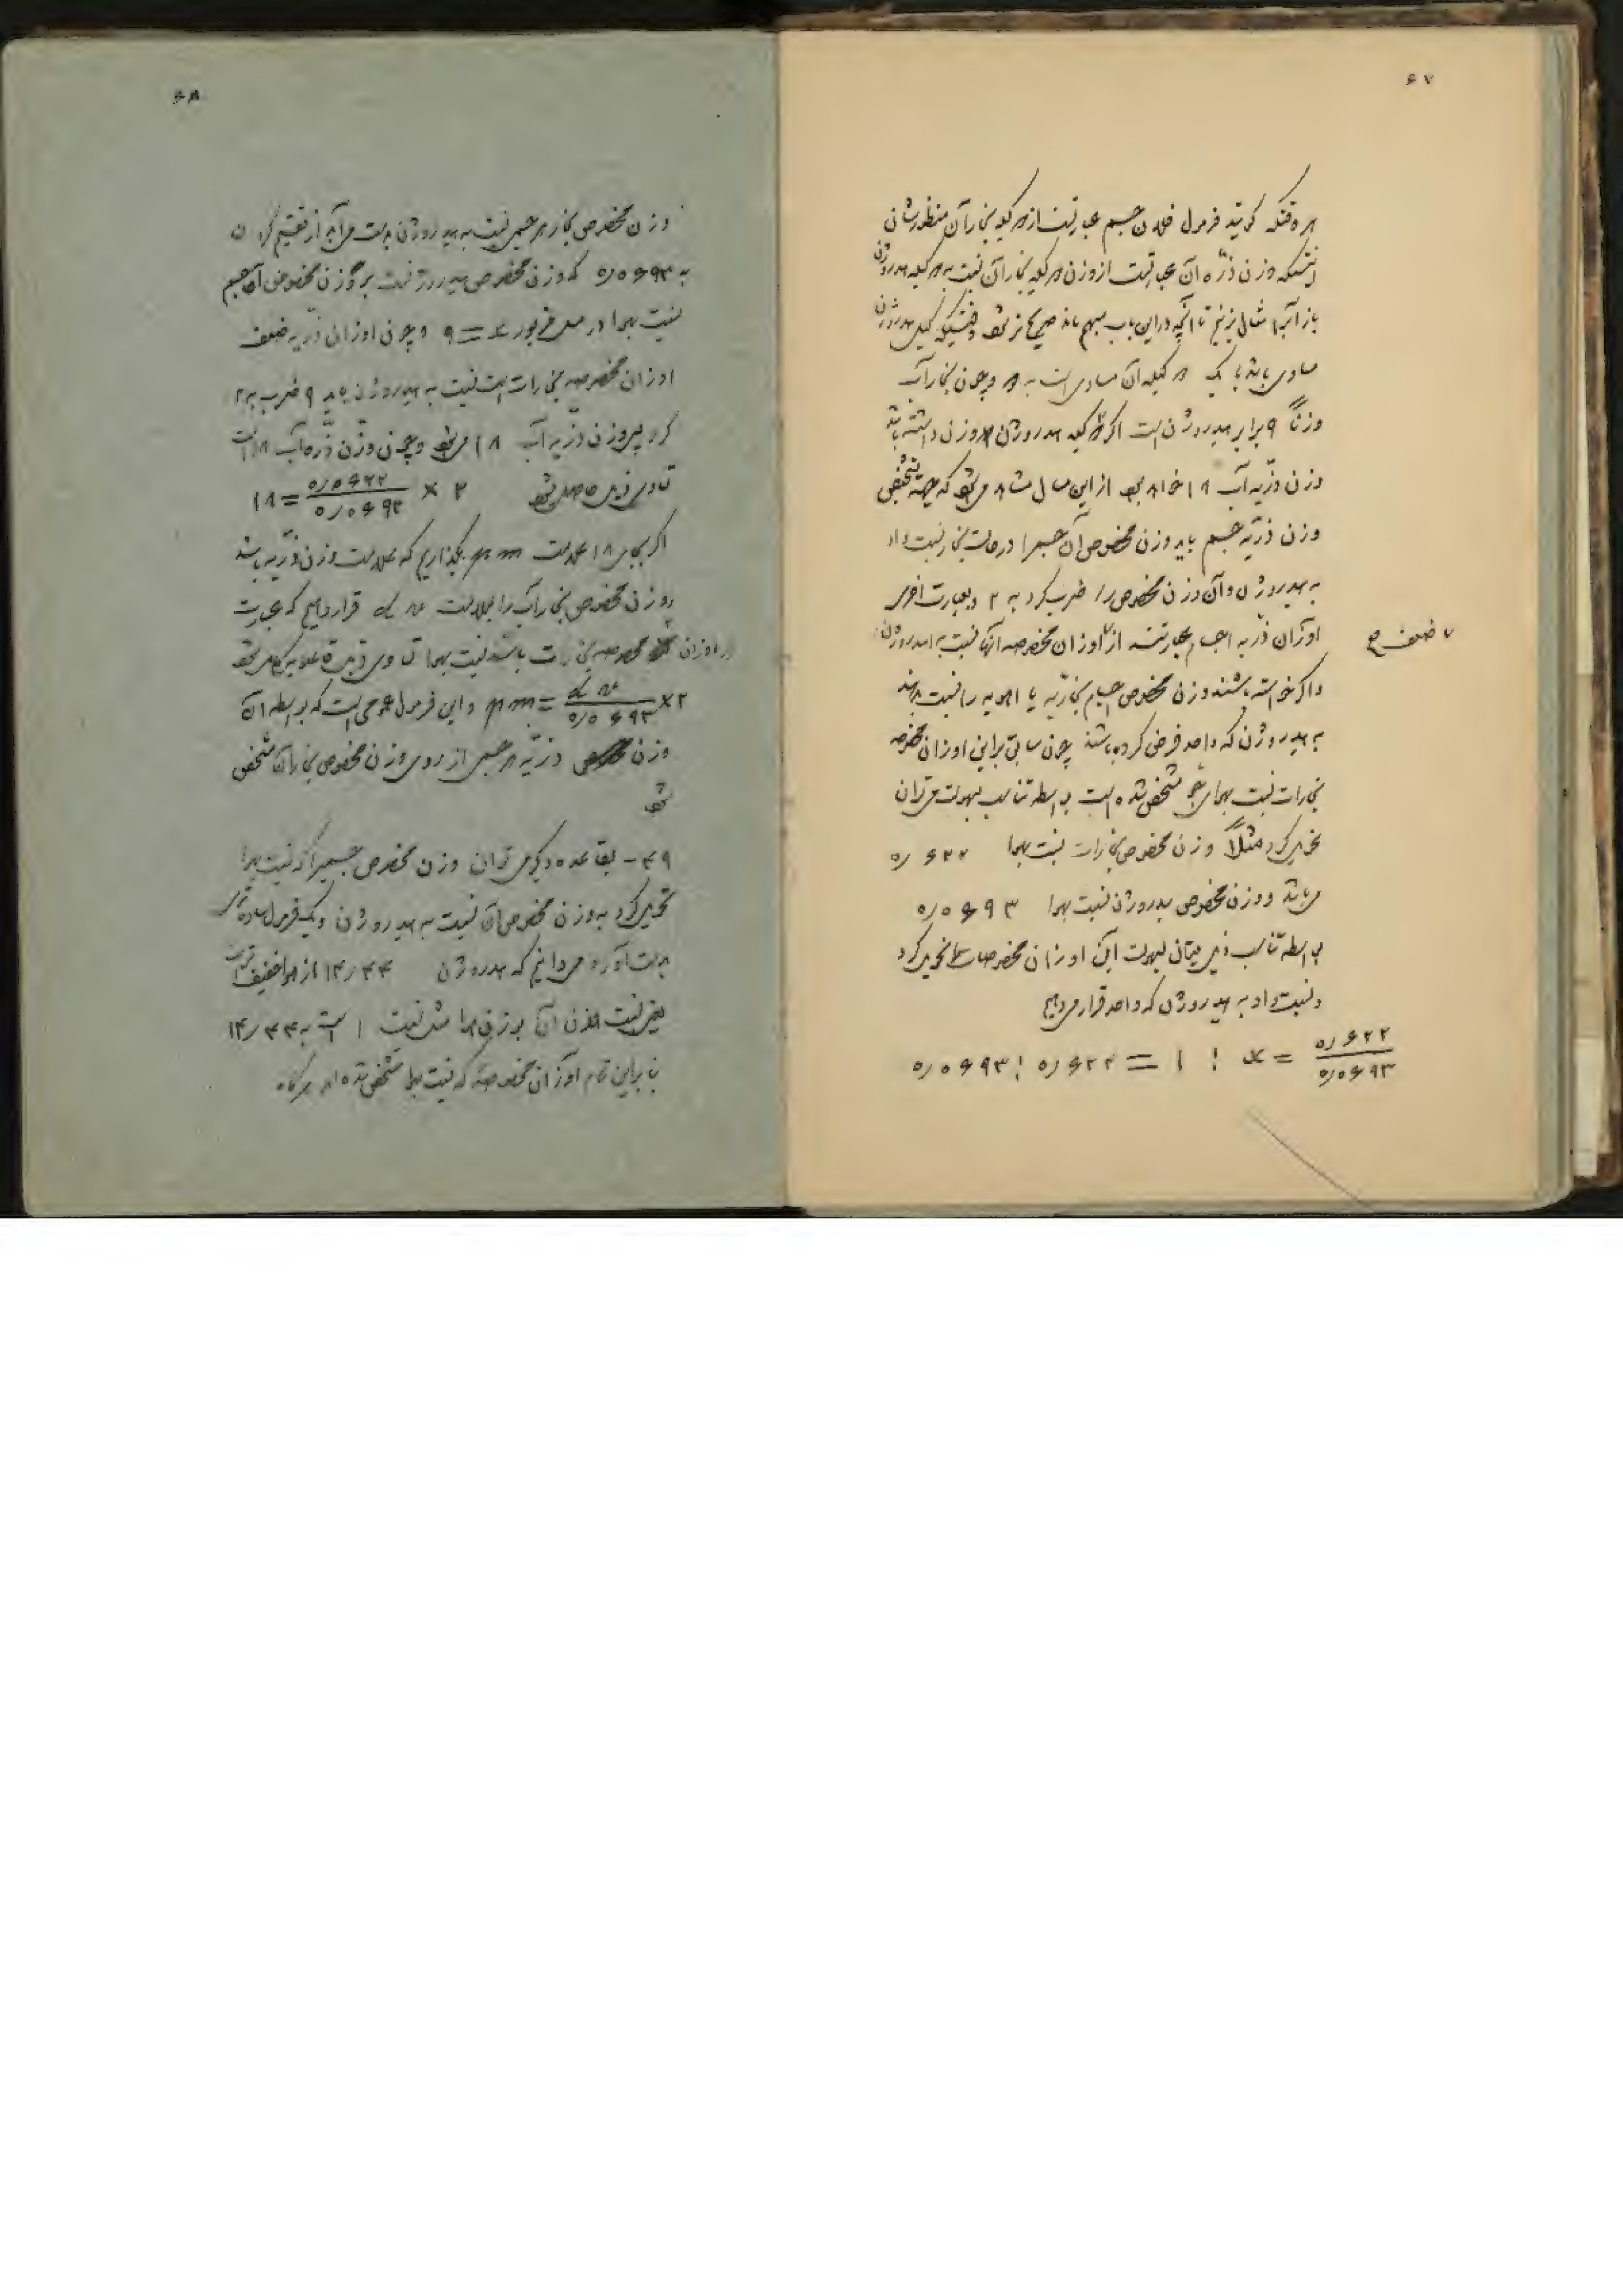 ۶۷
هر وقتکه گویند فرمول فلان جسم عبارتست از هر کیله بخار آن منظورشان
اینستکه وزن ذرّه آن عبارتست از وزن هر کیله بخار آن نسبت به هر کیله هیدروژن
باز آنرا مثال بزنیم تا آنچه در این باب مبهم مانده صریح تر شود وقتیکه کیله هیدروژن
مساوی باشد با یک کیله آن مساوی است به و چون بخار آب
وزناً ۹ برابر هیدروژن است اگر کیله هیدروژن وزن داشته باشد
وزن ذرّیه آب ۱۸ خواهد بود از این مثال مشاهده میشود که بجهة تشخیص
وزن ذرّیه جسم باید وزن مخصوص آن جسم را در حالت بخار نسبت داد
به هیدروژن و آن وزن مخصوص را ضرب کرد به ۲ و بعبارت اخری
اوزان ذرّیه اجسام عبارتند از اوزان مخصوصه آنها نسبت به هیدروژن
ضعف
و اگر خواسته باشند وزن مخصوص اجسام بخاریّه یا اهویه را نسبت بدهند
به هیدروژن که واحد فرض کرده باشند چون سابق بر این اوزان مخصوصه
بخارات نسبت بهوا مشخص شده است بواسطه تناسب بسهولت میتوان
تحویل کرد مثلاً وزن مخصوص بخار آب نسبت بهوا ۰٫۶۲۲
میباشد و وزن مخصوص هیدروژن نسبت بهوا ۰٫۰۶۹۳
بواسطه تناسب ذیل میتوان بسهولت این اوزان مخصوصه را تحویل کرد
و نسبت داد به هیدروژن که واحد قرار میدهیم
۰٫۰۶۹۳ : ۰٫۶۲۲ = ۱ : x = ۰٫۶۲۲ / ۰٫۰۶۹۳
۶۸
وزن مخصوص بخار هر جسمی نسبت به هیدروژن بدست می‌آید از تقسیم کردن
به ۰٫۰۶۹۳ که وزن مخصوص هیدروژنست بر وزن مخصوص آن جسم
نسبت بهوا در مثل مزبور x = ۹ و چون اوزان ذرّیه ضعف
اوزان مخصوصه بخارات است نسبت به هیدروژن باید ۹ ضرب به ۲
کرد پس وزن ذرّیه آب ۱۸ میشود و چون وزن ذرّه آب ۱۸ است
تساوی ذیل حاصل شود ۲ × ۰٫۶۲۲ / ۰٫۰۶۹۳ = ۱۸
اگر بجای ۱۸ علامت pm بگذاریم که علامت وزن ذرّیه باشد
و وزن مخصوص بخار آب را بعلامت dv قرار دهیم که عبارت
از اوزان مخصوصه بخارات باشد نسبت بهوا تساوی ذیل
۲ × dv / ۰٫۰۶۹۳ = pm و این فرمول عمومی است که بواسطه آن
وزن ذرّیه هر جسمی از روی وزن مخصوص بخار آن مشخص
شود
۴۹ - بقاعده دیگر میتوان وزن مخصوص جسمیرا که نسبت بهوا
تحویل کرد به وزن مخصوص آن نسبت به هیدروژن و یک فرمول ساده
بدست آورد میدانیم که هیدروژن ۱۴٫۴۴ از هوا خفیف تر است
یعنی نسبت وزن آن بوزن هوا مثل نسبت ۱ است به ۱۴٫۴۴
بنابراین تمام اوزان مخصوصه که نسبت بهوا مشخص شده اند هرگاه